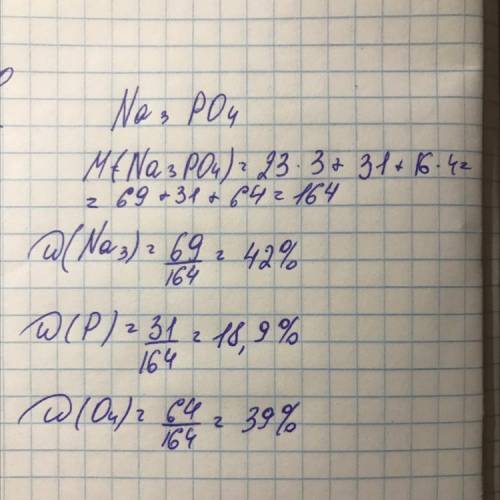 Na₃ PO₄
Mr(Na₃PO₄) = 23 · 3 + 31 + 16 · 4 =
= 69 + 31 + 64 = 164
W(Na₃) = 69/164 = 42%
W(P) = 31/164 = 18,9%
W(O₄) = 64/164 = 39%